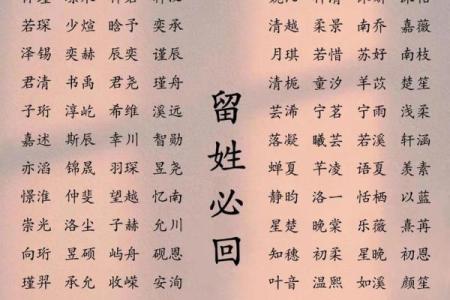 若琛 少煊 晗予 奕承
泽锡 奕赫 辰奕 谨辰
君清 书禹 君尧 瑾舟
子珩 淳屹 希维 溪远
嘉述 斯辰 幸川 智勋
亦滔 锦晟 羽琛 昱尧
憬淮 仲斐 望越 忆南
崇光 洛尘 子赫 允川
向珩 昱硕 屿舟 砚恩
瑾羿 承允 收嵘 安洵
留姓必回
清越 柔景 南乔 嘉薇
月琪 若惜 苏妤 南枝
清栀 童汐 羊苡 楚笙
芸浠 宁茗 宁雨 浅柔
落凝 曦芸 若溪 轩涵
蝉夏 芊凌 语夏 羡素
静昀 洛一 恬栖 以蓝
星楚 晚棠 乐薇 熹苒
知穗 初柔 星晚 初恩
叶音 温熙 如溪 颜笙